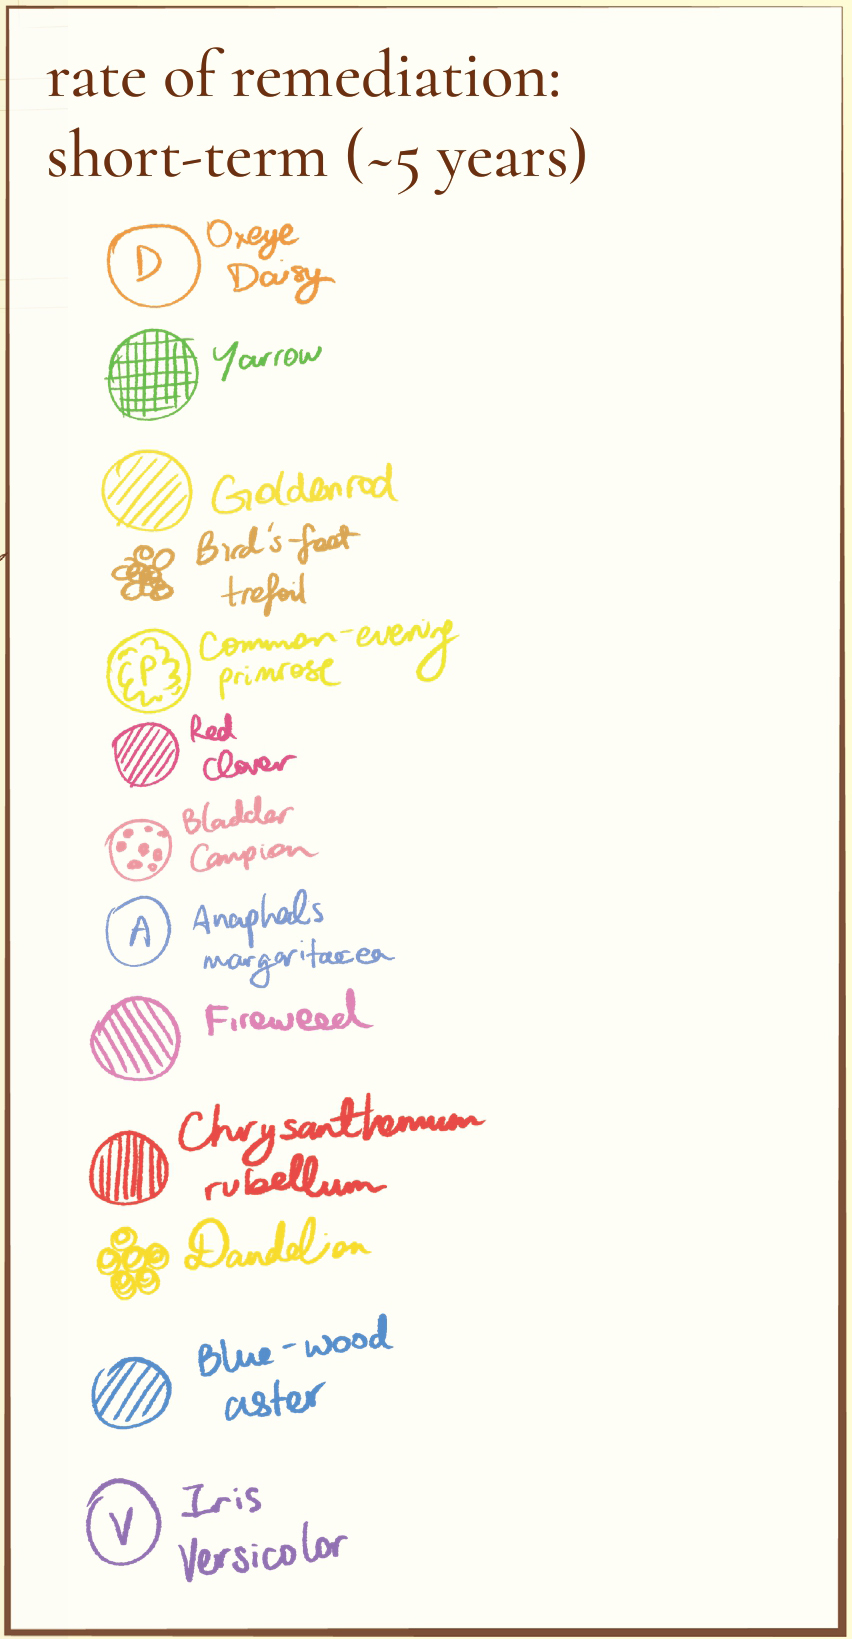 rate of remediation:
short-term (~5 years)
D
Oxeye
Daisy
Yarrow
Goldenrod
Bird's-foot
trefoil
Common-evening
primrose
CP
Red
Clover
Bladder
Campion
A
Anaphalis
margaritacea
Fireweed
Chrysanthemum
rubellum
Dandelion
Blue-wood
aster
V
Iris
Versicolor